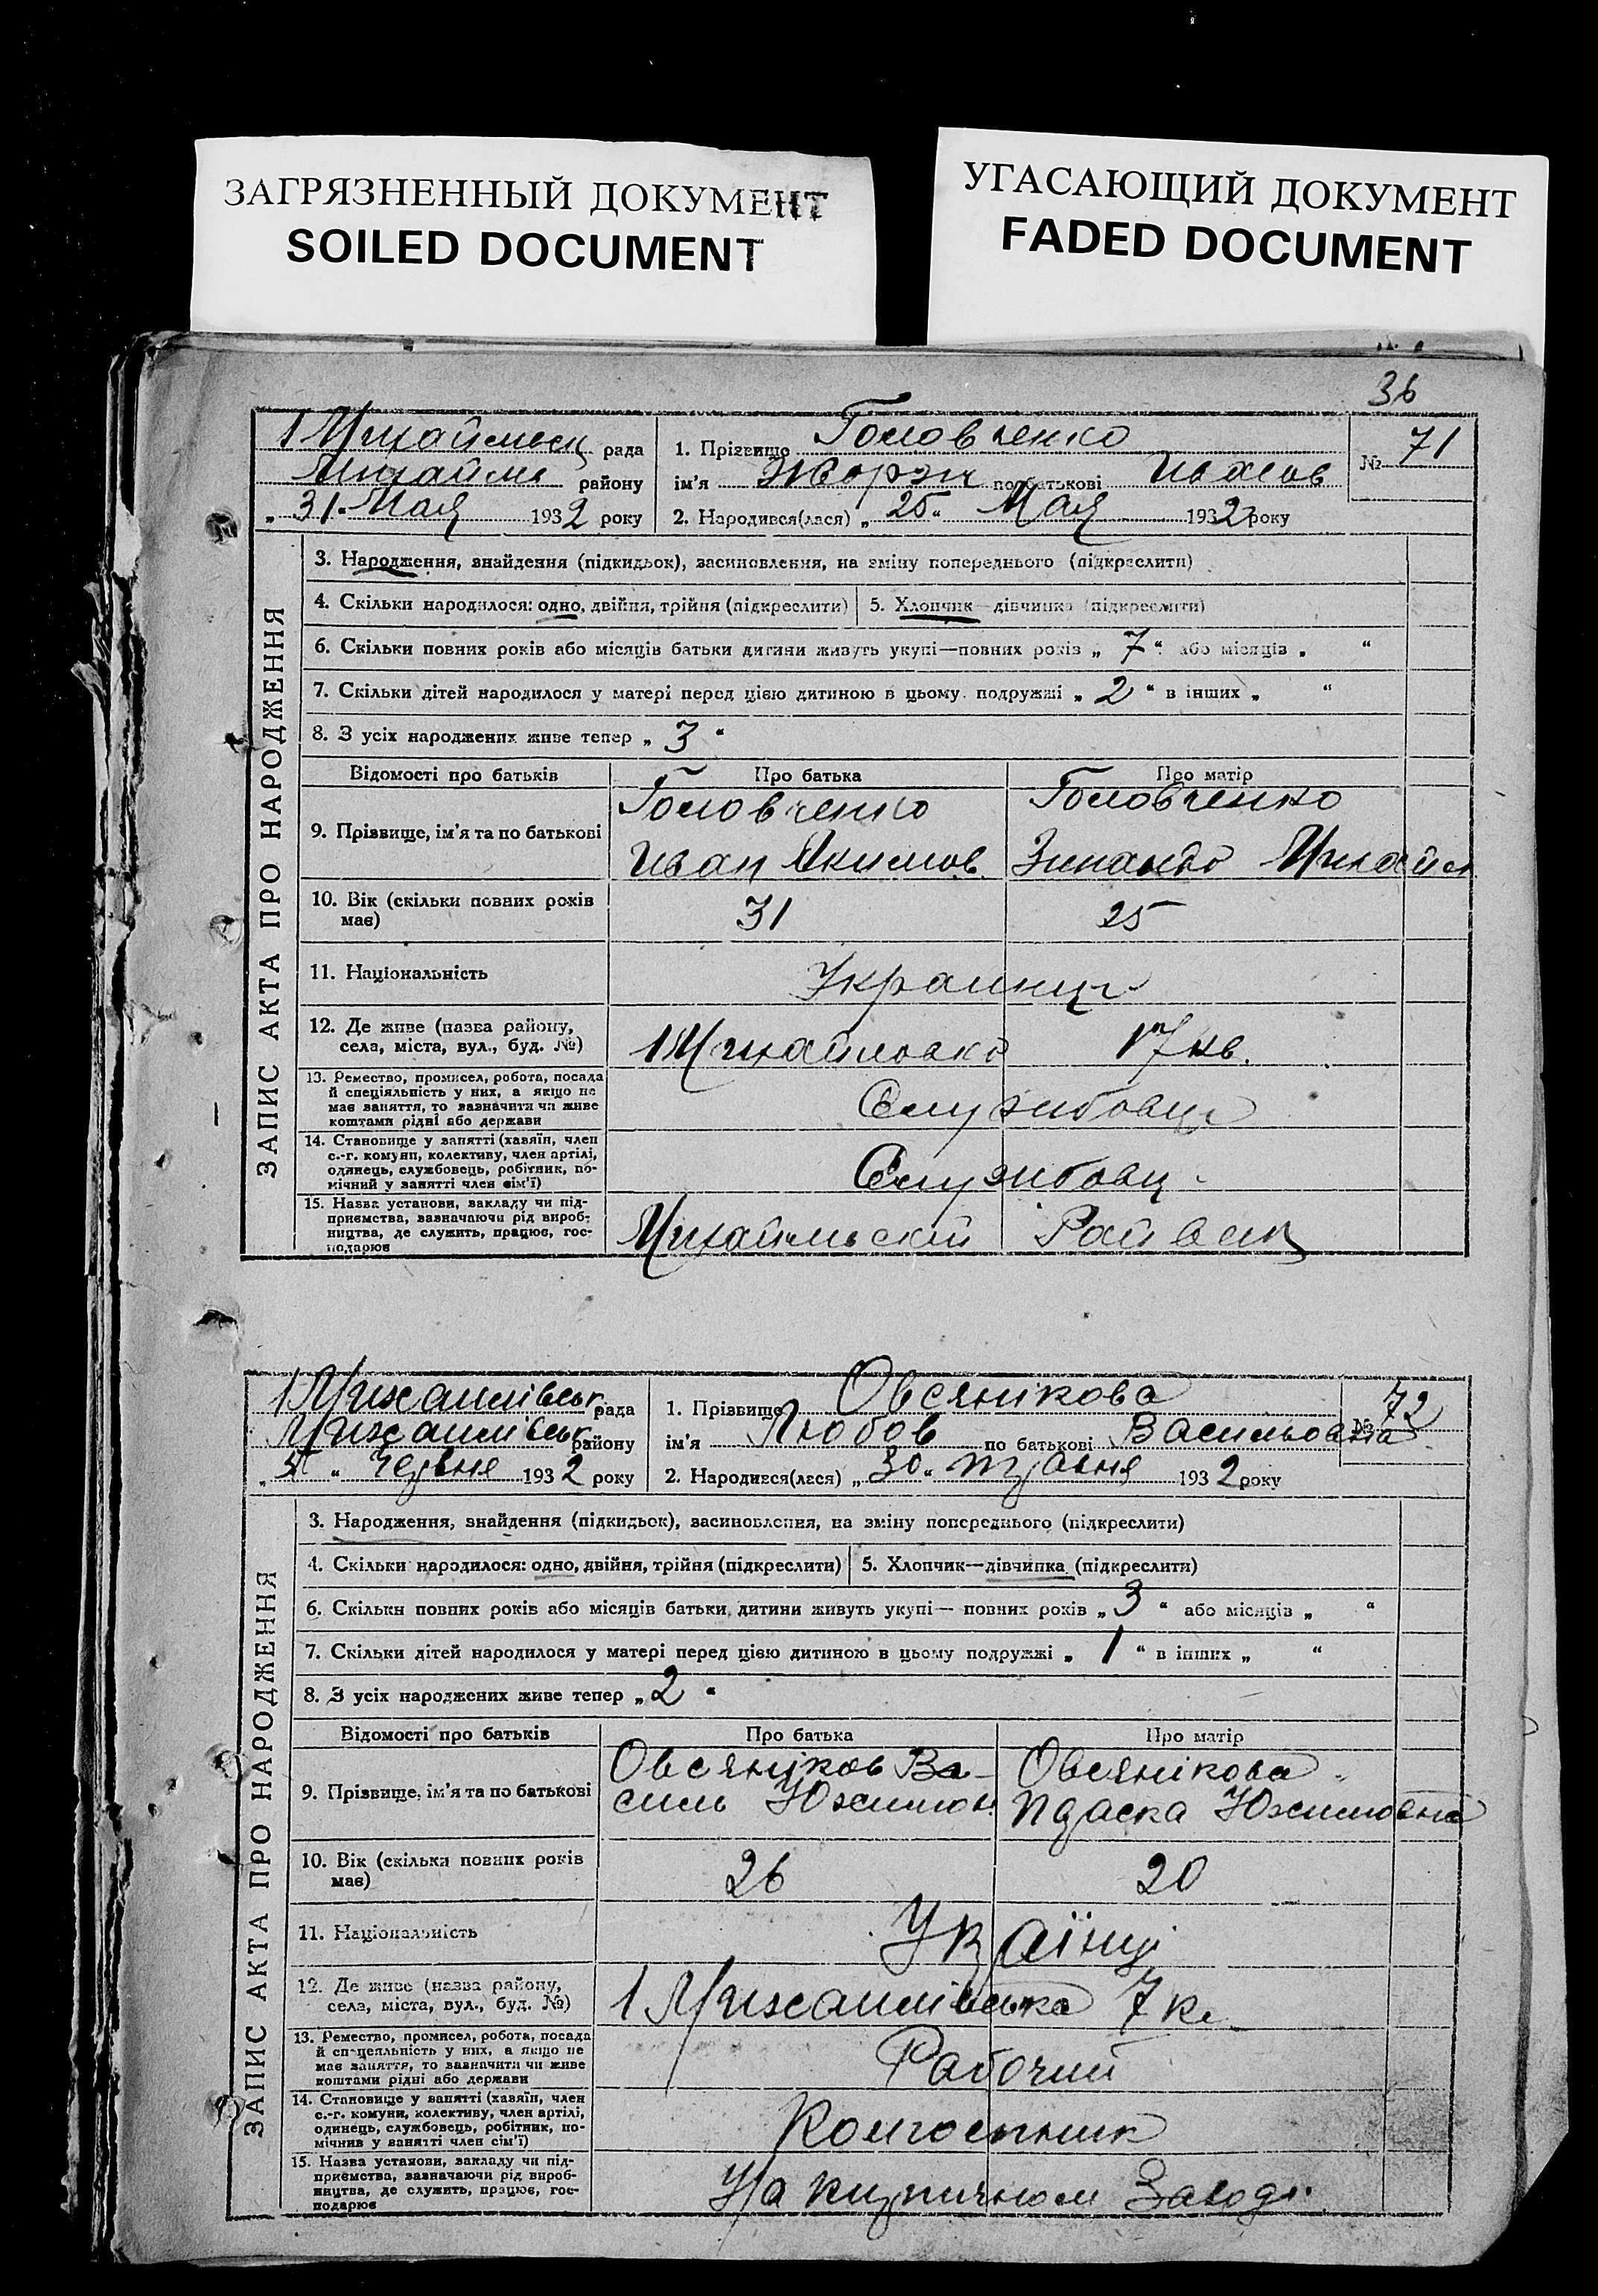 ЗАГРЯЗНЕННЫЙ ДОКУМЕНТ
SOILED DOCUMENT
УГАСАЮЩИЙ ДОКУМЕНТ
FADED DOCUMENT
36
ЗАПИС АКТА ПРО НАРОДЖЕННЯ
1 Михайльськ рада
Михайль району
„ 31. Мая 1932 року
1. Прізвище Головченко
ім'я Жорж по батькові Иванов
2. Народився(лася) „ 25 “ Мая 1932 року
№ 71
3. Народження, знайдення (підкидьок), засиновлення, на зміну попереднього (підкреслити)
4. Скільки народилося: одно, двійня, трійня (підкреслити) 5. Хлопчик—дівчинка (підкреслити)
6. Скільки повних років або місяців батьки дитини живуть укупі—повних років „ 7 “ або місяців „ “
7. Скільки дітей народилося у матері перед цією дитиною в цьому подружжі „ 2 “ в інших „ “
8. З усіх народжених живе тепер „ 3 “
Відомості про батьків Про батька Про матір
9. Прізвище, ім'я та по батькові
Головченко
Иван Якимов
Головченко
Зинаида Михайл
10. Вік (скільки повних років
має)
31 25
11. Національність
Украинци
12. Де живе (назва району,
села, міста, вул., буд. №)
1 Михайловка 17 кв.
13. Ремество, промисел, робота, посада
й спеціяльність у них, а якщо не
має заняття, то зазначити чи живе
коштами рідні або держави
Службовци
14. Становище у занятті (хазяїн, член
с.-г. комуни, колективу, член артілі,
одинець, службовець, робітник, по-
мічний у занятті член сім'ї)
Службовц
15. Назва установи, закладу чи під-
приємства, зазначаючи рід вироб-
ництва, де служить, працює, гос-
подарює
Михайльский
ЗАПИС АКТА ПРО НАРОДЖЕННЯ
1 Михайлівськ рада
Михайлівськ району
“ Червня 1932 року
1. Прізвище Овсянікова
ім'я Любов по батькові Васильовна
2. Народився(лася) „ 30 “ травня 1932 року
№ 72
3. Народження, знайдення (підкидьок), засиновлення, на зміну попереднього (підкреслити)
4. Скільки народилося: одно, двійня, трійня (підкреслити) 5. Хлопчик—дівчинка (підкреслити)
6. Скільки повних років або місяців батьки дитини живуть укупі— повних років „ 3 “ або місяців „ “
7. Скільки дітей народилося у матері перед цією дитиною в цьому подружжі „ 1 “ в інших „ “
8. З усіх народжених живе тепер „ 2 “
Відомості про батьків Про батька Про матір
9. Прізвище, ім'я та по батькові
Овсяніков Ва-
силь Юхимов
Овсянікова
Юхимовна
10. Вік (скільки повних років
має)
26 20
11. Національність
Українці
12. Де живе (назва району,
села, міста, вул., буд. №)
1 Михайлівська 7 кв.
13. Ремество, промисел, робота, посада
й спеціяльність у них, а якщо не
має заняття, то зазначити чи живе
коштами рідні або держави
Рабочий
14. Становище у занятті (хазяїн, член
с.-г. комуни, колективу, член артілі,
одинець, службовець, робітник, по-
мічний у занятті член сім'ї)
Колгоспник
15. Назва установи, закладу чи під-
приємства, зазначаючи рід вироб-
ництва, де служить, працює, гос-
подарює
На кирпичном Заводі